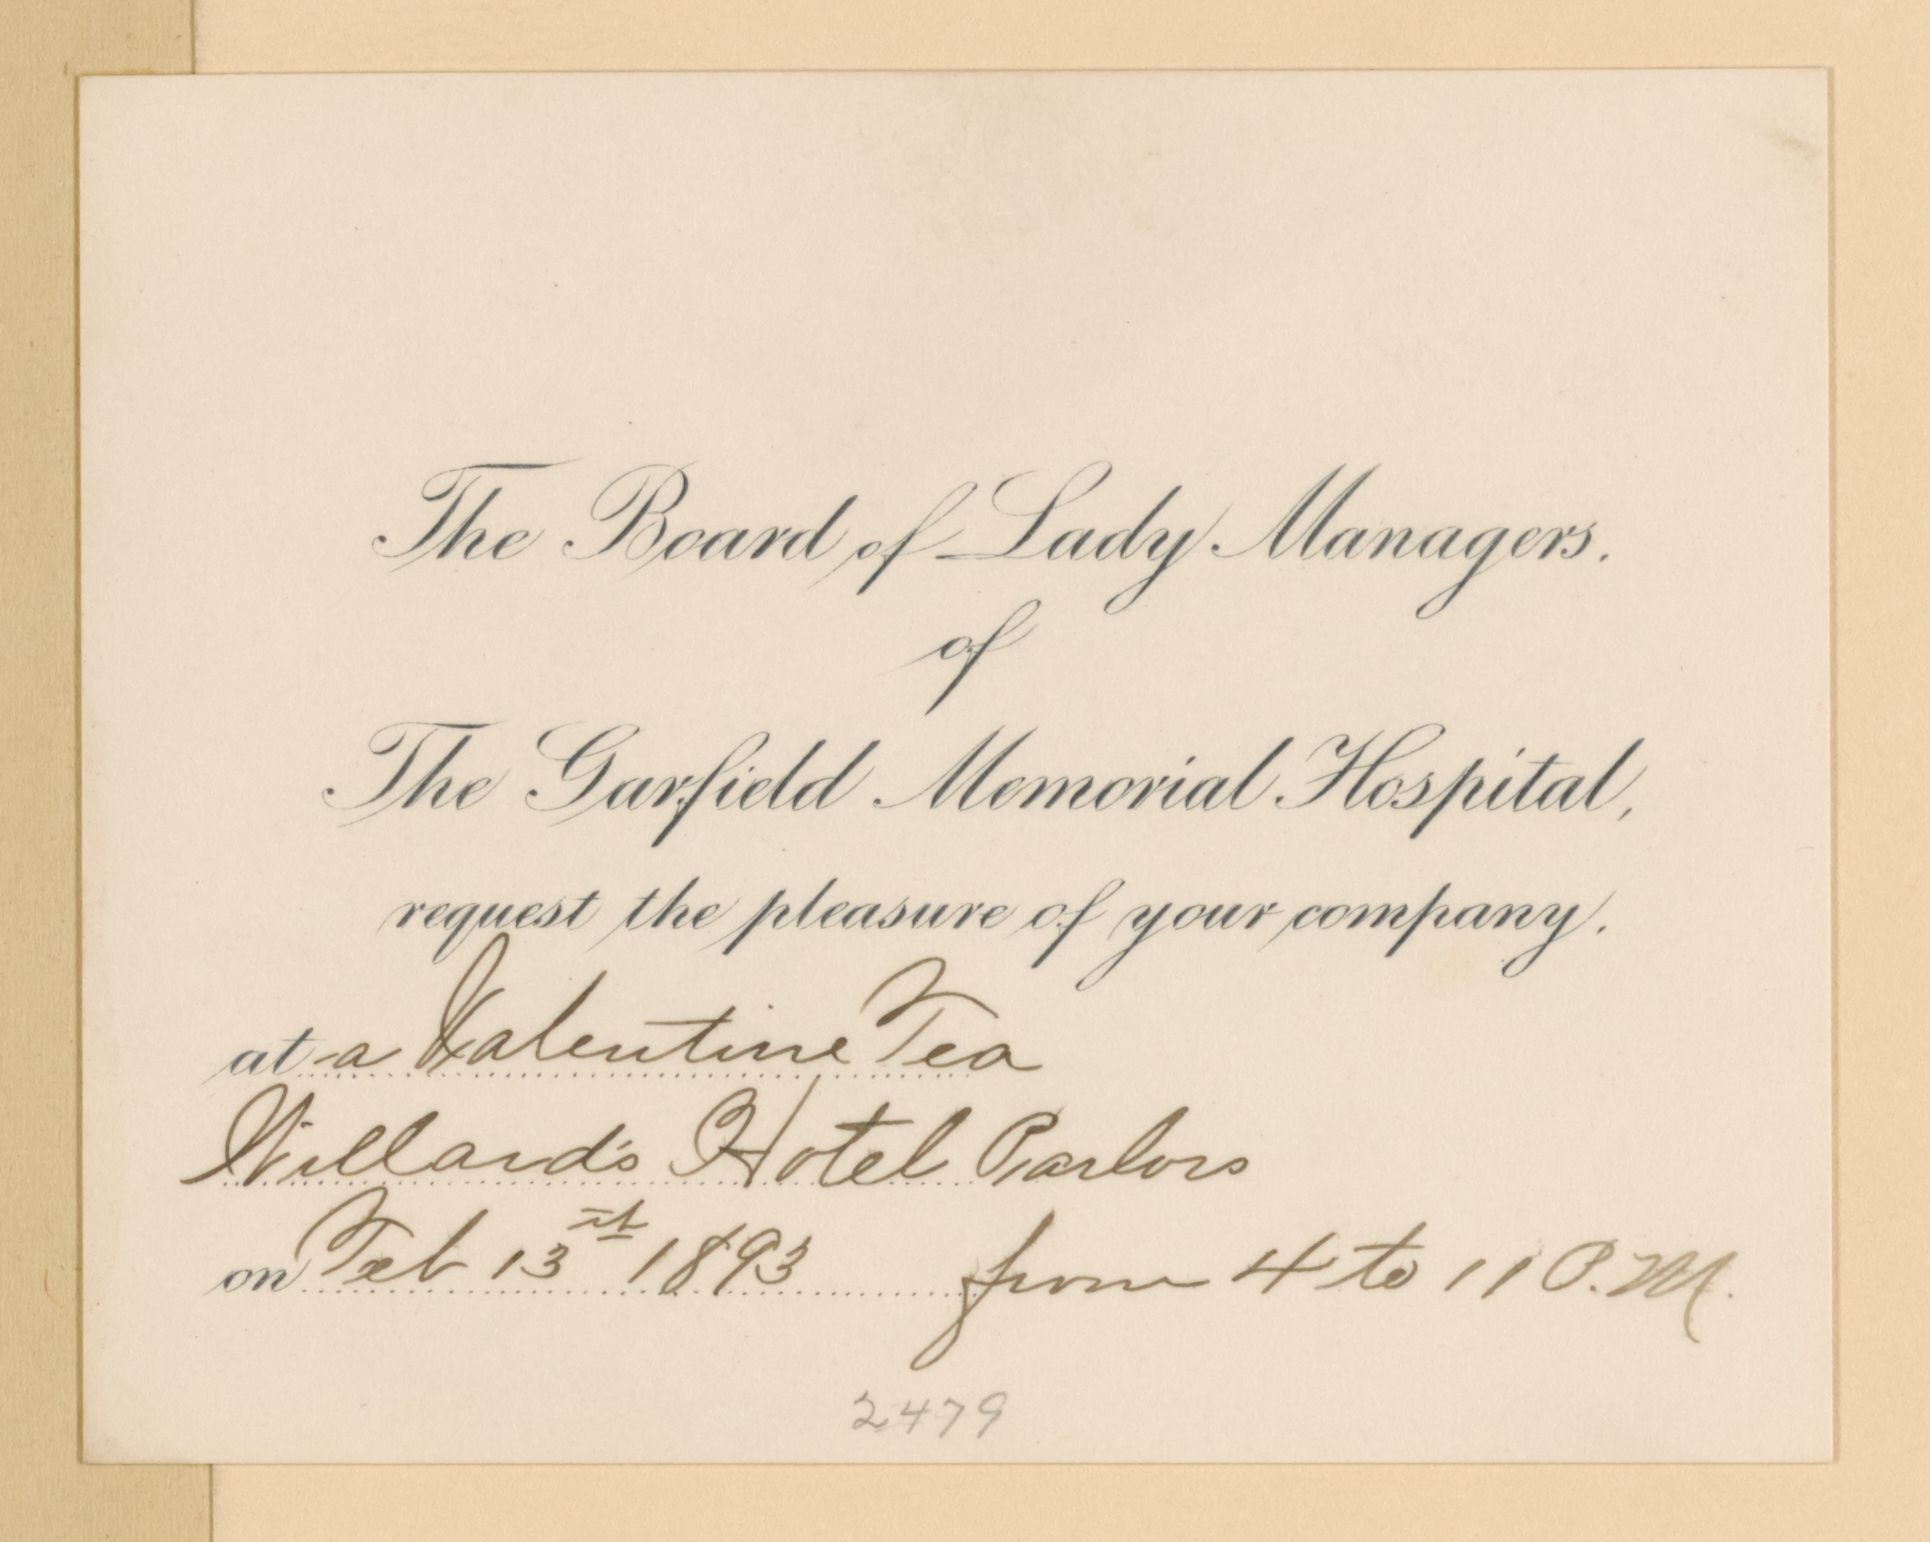 The Board of Lady Managers.
of
The Garfield Memorial Hospital,
request the pleasure of your company.
at a Valentine Tea
Willard's Hotel Parlors
on Feb 13th 1893 from 4 to 11 P.M.
2479